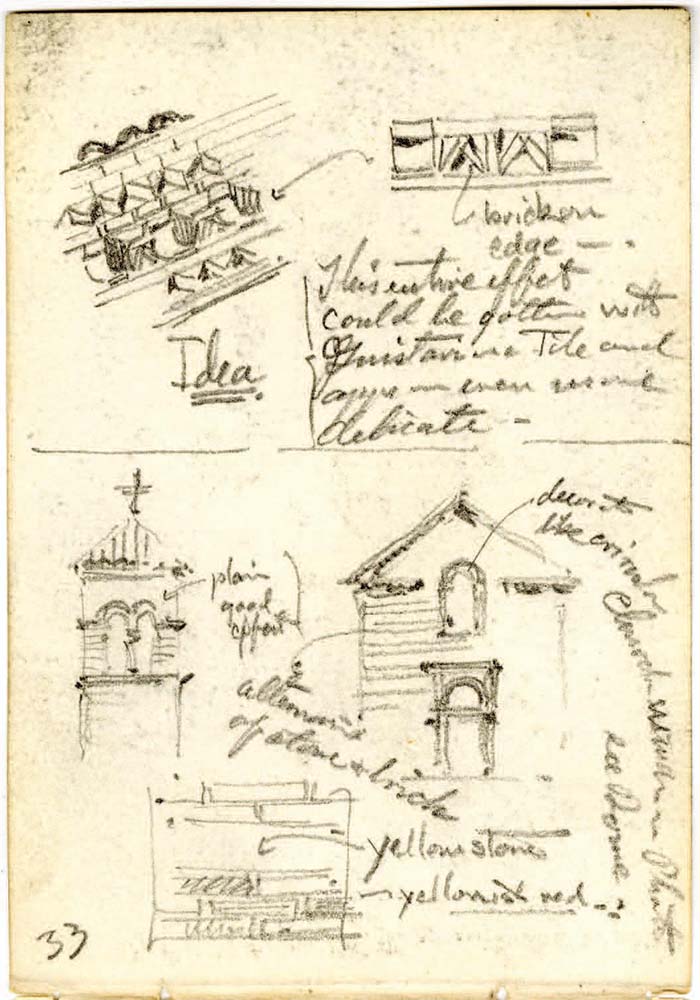 bricken
edge -
This entire effect
could be gotten with
Guistavino Tile and
even more
delicate -
Idea
plain
good
effect
like
church window in
alternating
of stone & brick
yellow stone
yellowish red
33